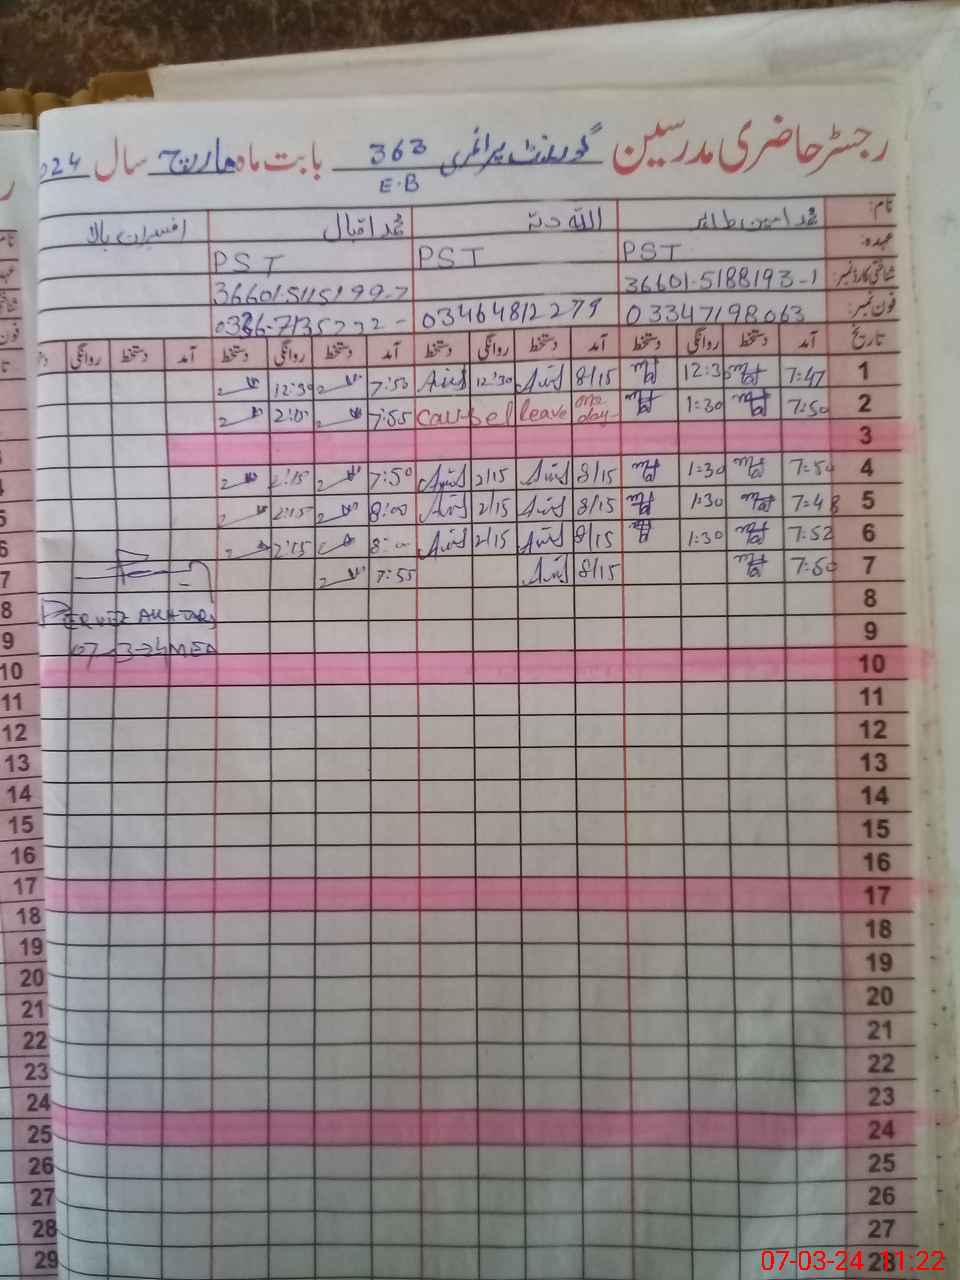 رجسٹر حاضری مدرسین گورنمنٹ پرائمری 363 E.B بابت ماہ مارچ سال 024
نام: محمد امین طاہر اللہ دتہ محمد اقبال افسران بالا
عہدہ: PST PST PST
شناختی کارڈ نمبر: 36601-5188193-1 36601-5115199-7
فون نمبر: 03347198063 03464812279
تاریخ آمد دستخط روانگی دستخط آمد دستخط روانگی دستخط آمد دستخط روانگی دستخط آمد دستخط روانگی
1 7:47 12:35 8/15 12:30 7:50 12:30
2 7:50 1:30 one day leave 7:55 2:00
3
4 7:50 1:30 8/15 2/15 7:50 2:15
5 7:48 1:30 8/15 2/15 8:00 2:15
6 7:52 1:30 8/15 2/15 8:00 2:15
7 7:50 8/15 7:55
8 PERVEZ AKHTAR
9 07-3-24
10
11
12
13
14
15
16
17
18
19
20
21
22
23
24
25
26
27
28
07-03-24 11:22